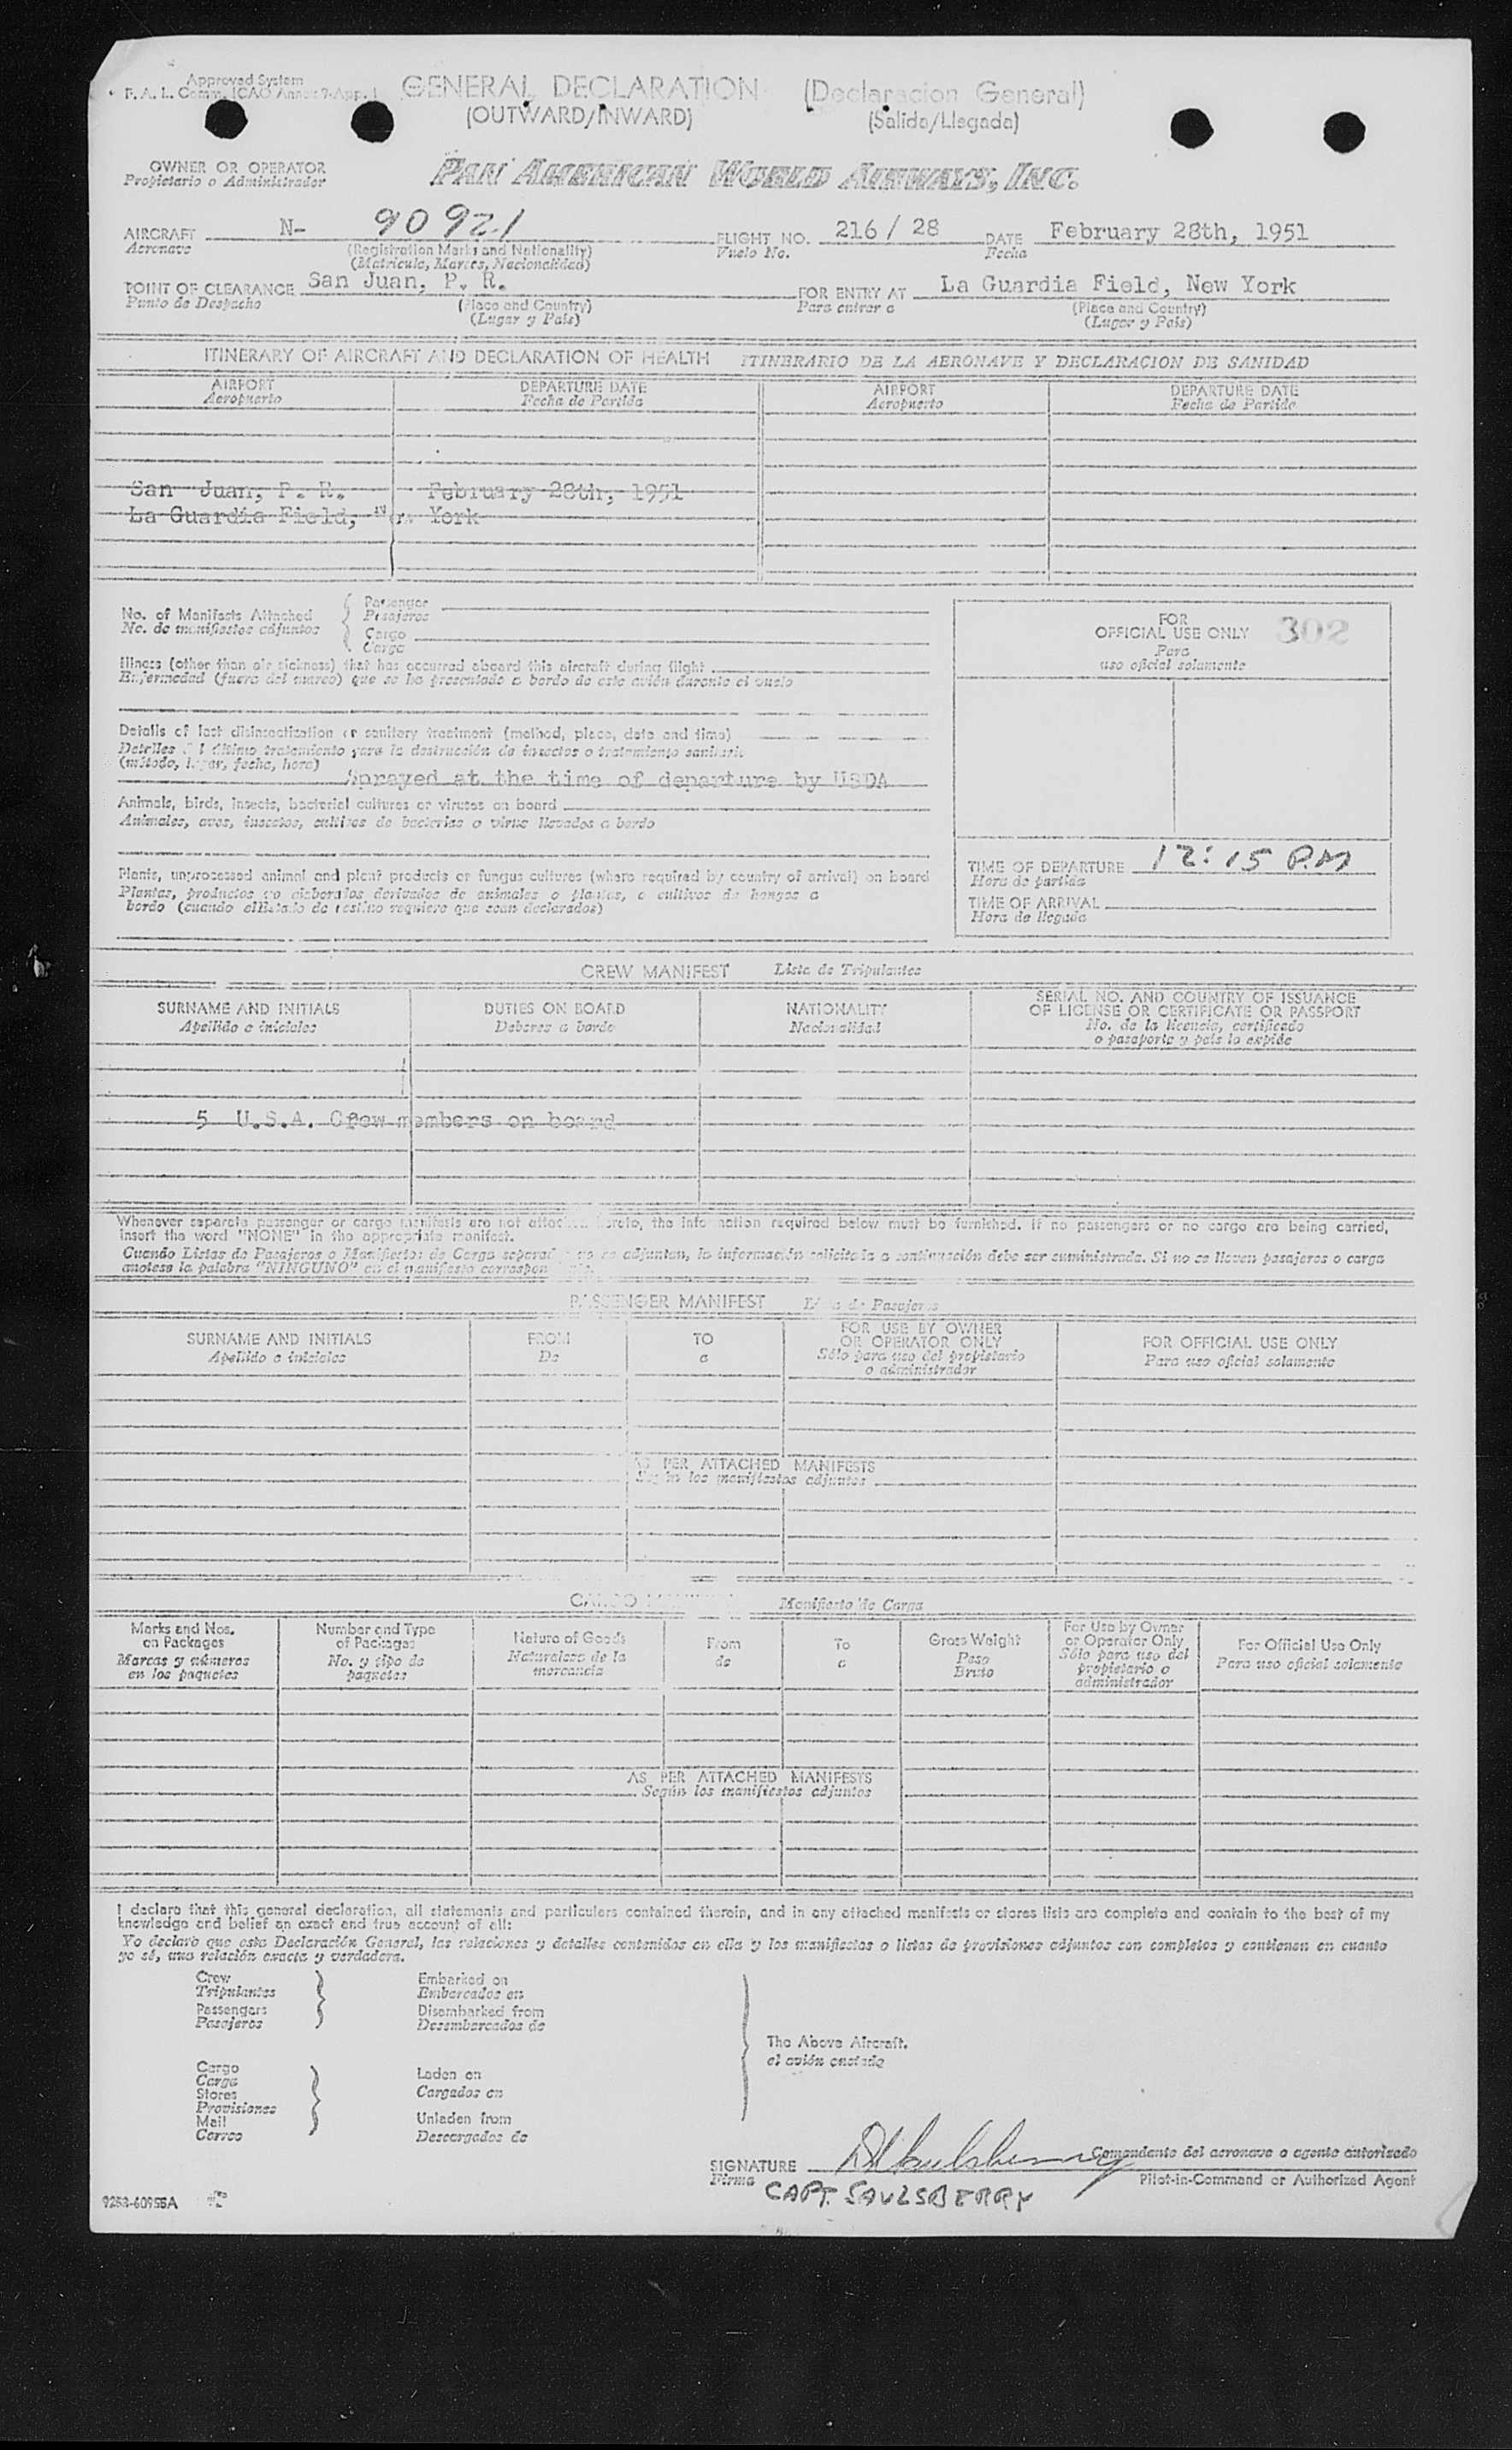 Approved System
F. A. L. Comm. ICAO Annex 9-App. 1
GENERAL DECLARATION (Declaracion General)
(OUTWARD/INWARD) (Salida/Llegada)
OWNER OR OPERATOR PAN AMERICAN WORLD AIRWAYS, INC.
Propietario o Administrador
AIRCRAFT N- 90921 FLIGHT NO. 216 / 28 DATE February 28th, 1951
Aeronave (Registration Marks and Nationality) Vuelo No. Fecha
(Matricula, Marcas, Nacionalidad)
POINT OF CLEARANCE San Juan, P. R. FOR ENTRY AT La Guardia Field, New York
Punto de Despacho (Place and Country) Para entrar a (Place and Country)
(Lugar y Pais) (Lugar y Pais)
ITINERARY OF AIRCRAFT AND DECLARATION OF HEALTH ITINERARIO DE LA AERONAVE Y DECLARACION DE SANIDAD
AIRPORT DEPARTURE DATE AIRPORT DEPARTURE DATE
Aeropuerto Fecha de Partida Aeropuerto Fecha de Partida
San Juan, P. R. February 28th, 1951
La Guardia Field, New York
No. of Manifests Attached Passenger
No. de manifiestos adjuntos Pasajeros
Cargo
Carga
FOR
OFFICIAL USE ONLY 302
Para
uso oficial solamente
Illness (other than air sickness) that has occurred aboard this aircraft during flight
Enfermedad (fuera del mareo) que se ha presentado a bordo de este avión durante el vuelo
Details of last disinsectization or sanitary treatment (method, place, date and time)
Detalles del último tratamiento para la destrucción de insectos o tratamiento sanitario
(método, lugar, fecha, hora)
Sprayed at the time of departure by USDA
Animals, birds, insects, bacterial cultures or viruses on board
Animales, aves, insectos, cultivos de bacterias o virus llevados a bordo
Plants, unprocessed animal and plant products or fungus cultures (where required by country of arrival) on board
Plantas, productos no elaborados derivados de animales o plantas, o cultivos de hongos a
bordo (cuando el Estado de destino requiere que sean declarados)
TIME OF DEPARTURE 12:15 P.M
Hora de partida
TIME OF ARRIVAL
Hora de llegada
CREW MANIFEST Lista de Tripulantes
SURNAME AND INITIALS DUTIES ON BOARD NATIONALITY SERIAL NO. AND COUNTRY OF ISSUANCE
OF LICENSE OR CERTIFICATE OR PASSPORT
Apellido e iniciales Deberes a bordo Nacionalidad No. de la licencia, certificado
o pasaporte y país lo expide
5 U.S.A. Crew members on board
Whenever separate passenger or cargo manifests are not attached hereto, the information required below must be furnished. If no passengers or no cargo are being carried,
insert the word "NONE" in the appropriate manifest.
Cuando Listas de Pasajeros o Manifiestos de Carga separados no se adjuntan, la información solicitada a continuación debe ser suministrada. Si no se llevan pasajeros o carga
anotese la palabra "NINGUNO" en el manifiesto
PASSENGER MANIFEST Lista de Pasajeros
SURNAME AND INITIALS FROM TO FOR USE BY OWNER
OR OPERATOR ONLY FOR OFFICIAL USE ONLY
Apellido e iniciales De a Sólo para uso del propietario
o administrador Para uso oficial solamente
AS PER ATTACHED MANIFESTS
Según los manifiestos adjuntos
CARGO Manifiesto de Carga
Marks and Nos.
on Packages
Marcas y números
en los paquetes
Number and Type
of Packages
No. y tipo de
paquetes
Nature of Goods
Naturaleza de la
mercancia
From
de
To
a
Gross Weight
Peso
Bruto
For Use by Owner
or Operator Only
Sólo para uso del
propietario o
administrador
For Official Use Only
Para uso oficial solamente
AS PER ATTACHED MANIFESTS
Según los manifiestos adjuntos
I declare that this general declaration, all statements and particulars contained therein, and in any attached manifests or stores lists are complete and contain to the best of my
knowledge and belief an exact and true account of all:
Yo declaro que esta Declaración General, las relaciones y detalles contenidos en ella y los manifiestos o listas de provisiones adjuntos son completos y contienen en cuanto
yo sé, una relación exacta y verdadera.
Crew Embarked on
Tripulantes Embarcados en
Passengers Disembarked from
Pasajeros Desembarcados de
The Above Aircraft.
el avión
Cargo Laden on
Carga Cargados en
Stores
Provisiones
Mail Unladen from
Correo Descargados de
SIGNATURE Comandante del aeronave o agente autorizado
Firma Pilot-in-Command or Authorized Agent
CAPT. SAULSBERRY